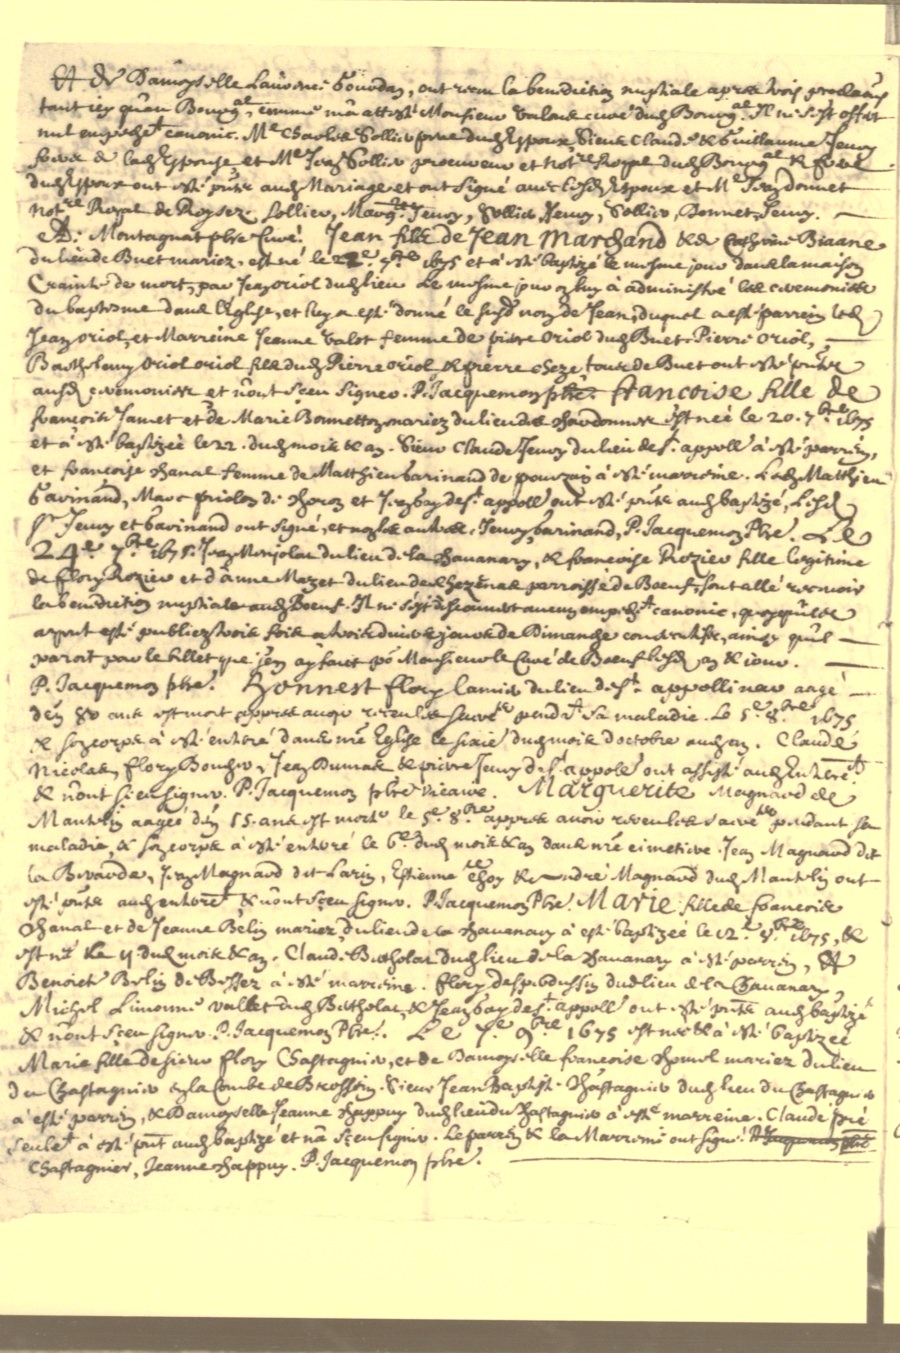 Et de Damoyselle Laurence Gourdan, ont receu la benediction nuptiale apres trois proclaãons
tant icy qu'au Bourg al, comme m'a attesté Monsieur Valous curé dud Bourg al. Il ne s'est offert
nul empeschet canonic. Me Charles Sollier pere dud Espoux, Sieurs Claude & Guillaume Jenoy
freres de lad Espouse et Me Jean Sollier procureur et Notre Royal dud Bourg al & frere
dud Espoux ont esté pnts aud Mariage et ont signé avec lesd Espoux et Me Jean Donnet
Notre Royal de Roysez. Sollier, Jenoy, Sollier, Jenoy, Sollier, Donnet, Jenoy.
Montagnat pbre Curé. Jean fils de Jean Marchand & de Catherine Biaane
du lieu de Buet mariez, est né le 22e 7bre 1675 et a esté baptizé le mesme jour dans la maison
Crainte de mort, par Jean Oriol dud lieu. Le mesme jour on luy a administré les ceremonies
du baptesme dans l'Eglise, et luy a esté donné le susd nom de Jean, duquel a esté parrein led
Jean Oriol, et Marreine Jeanne Valot femme de pierre Oriol dud Buet. Pierre Oriol,
Barthelemy Oriol fils dud Pierre Oriol & pierre Seze tous de Buet ont esté pnts
ausd ceremonies et n'ont sçeu signer. P. Jacquemon pbre. françoise fille de
françois Jamet et de Marie Bonnetton mariez du lieu de Chardonnet est née le 20. 7bre 1675
et a esté baptizée le 22. dud mois & an. Sieur Claude Jenoy du lieu de St. appoll a esté parrein,
et françoise Chanal femme de Matthieu Garinand de a esté marreine. Led Matthieu
Garinand, Marc de et Jean bay de St appoll ont esté pnts aud baptizé, Lesd
Sr Jenoy et Garinand ont signé, et non les autres. Jenoy, Garinand, P. Jacquemon Pbre. Le
24e 7bre 1675. Jean Monjolas du lieu de la Chavanary, & françoise Rozier fille legitime
de Flory Rozier et d'Anne Mazet du lieu de perroisse de Boeuf, sont allé recevoir
la benediction nuptiale aud Boeuf. Il ne s'est descouvert aucun empescht canonic, quoyqu'ils
ayent esté publiez trois fois a trois divers jours de Dimanche consecutifs, ainsy qu'il
paroit par le billet que j'en ay faict po Monsieur le Curé de Boeuf lesd an & jour.
P. Jacquemon pbre. Honnest Flory lamier du lieu de St. appollinar aagé
d'en 80 ans est mort appres avoir receu les sacrets pendt sa maladie. Le 5e 8bre 1675
& son corps a esté enterré dans nre Eglise le sixie dud mois d'octobre aud an. Claude
Nicolas, Flory Boucher, Jean Dumas & pierre Jenoy de St appoll ont assisté aud Enterret
& n'ont sçeu signer. P. Jacquemon pbre vicaire. Marguerite Magnard de
Mantelin aagée d'en 15. ans est morte le 5e 8bre appres avoir receu les sacrets pendant sa
maladie, & son corps a esté enterré le 6e dud mois & an dans nre cimetiere. Jean Magnard dit
la Berarde, Jean Magnard dit Larin, Estienne & André Magnard dud Mantelin ont
esté pnts aud enterret, & n'ont sçeu signer. P. Jacquemon Pbre. Marie fille de françois
Chanal et de Jeanne Belin mariez du lieu de la Chavanary a esté baptizée le 12e 8bre 1675, &
est née le 11 dud mois & an. Claude Batholat dud lieu de la Chavanary a esté parrein, et
Benoiet Belin de Bessez a esté marreine. Flory Despidussin dud lieu de la Chavanary,
Michel Limonne vallet dud Batholat, & Jean bay de St. appoll ont esté pnts aud baptizé
& n'ont sçeu signer. P. Jacquemon Pbre. Le 7e 9bre 1675 est née & a esté baptizée
Marie fille de sieur Flory Chastagnier, et de Damoyselle francoise Chomel mariez du lieu
du Chastagnier en la Combe de Brossain. Sieur Jean Baptiste Chastagnier dud lieu du Chastagnier
a esté parrein, & Damoyselle Jeanne Chappuy dud lieu du Chastagnier a esté marreine. Claude
seulet a esté pnt aud baptizé et n'a sçeu signer. Le parrein & la Marreine ont signé. P. Jacquemon pbre
Chastagnier, Jeanne Chappuy. P. Jacquemon pbre.